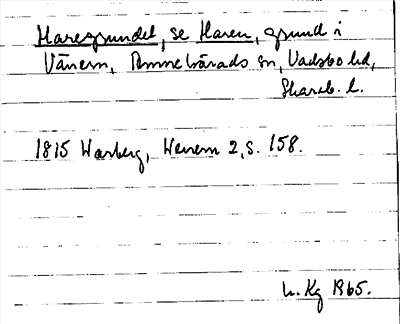 Haregrundet, se Haren, grund i
Vänern, Amnehärads sn, Vadsbo hd,
Skarab. l.
1815 Warberg, Wenern 2, s. 158.
L. Kg 1965.